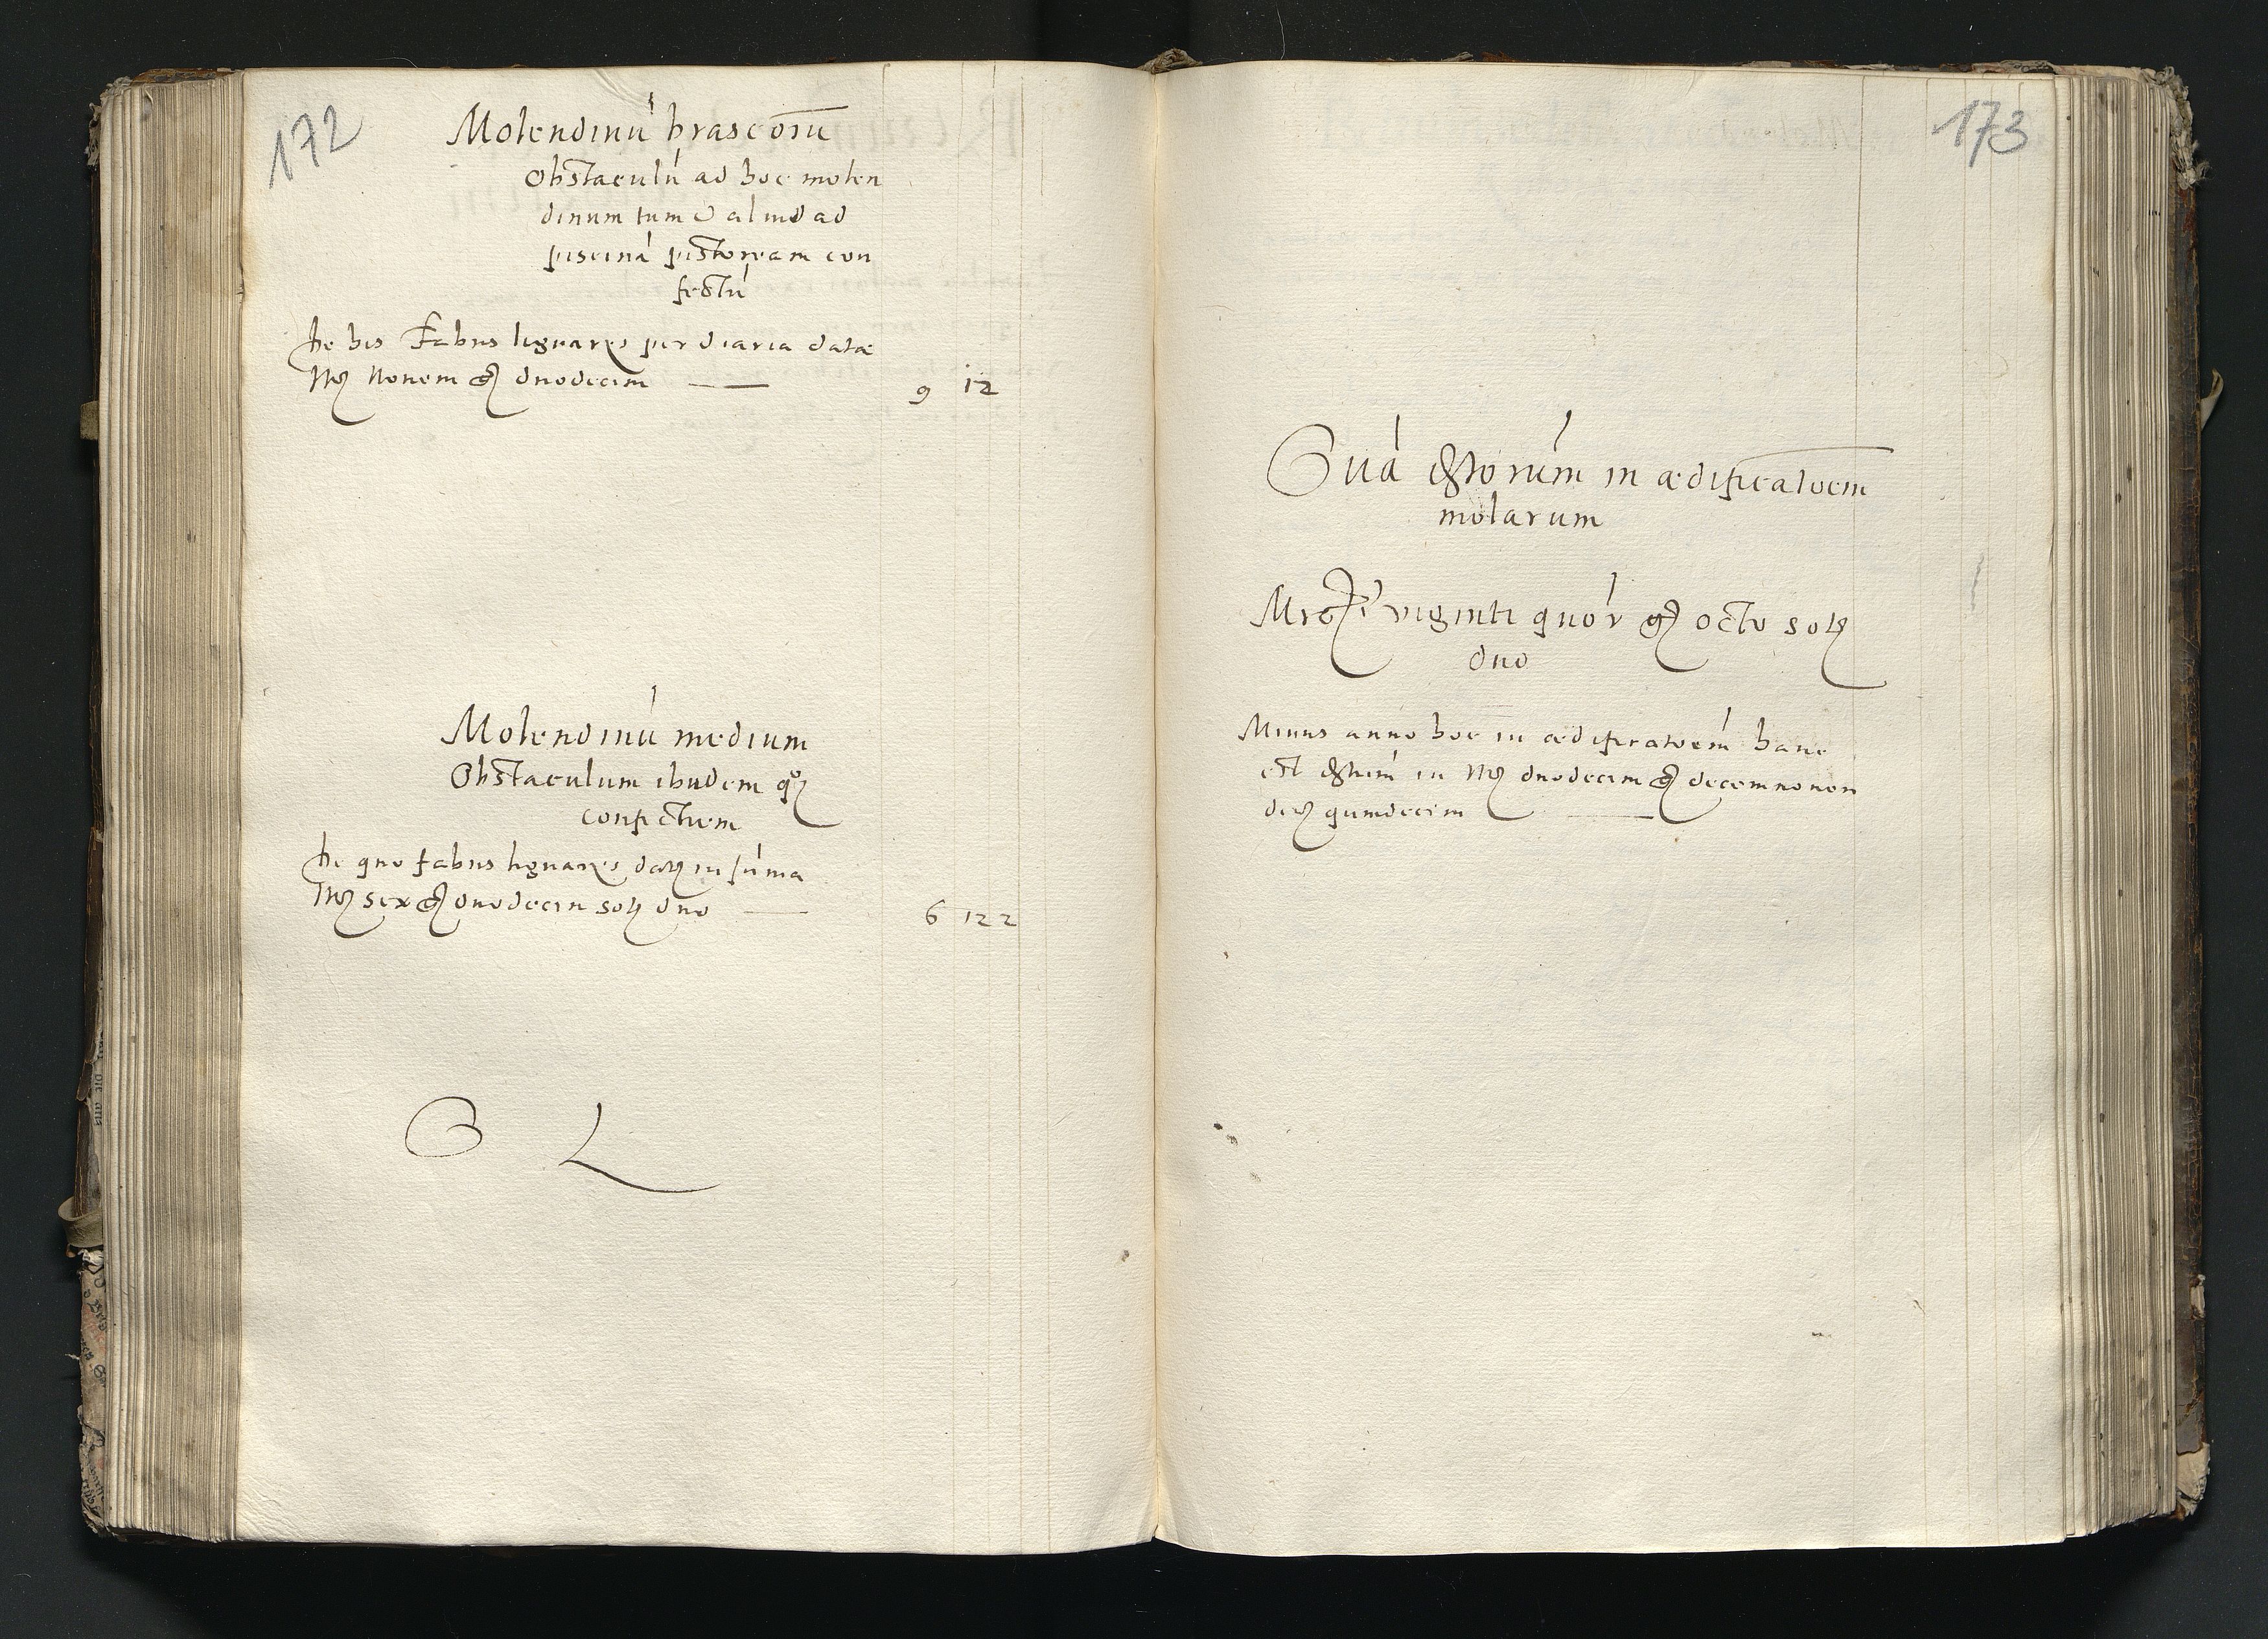 172
Molendinú brasеoru̅
Obstaculú ad hoc molen
dinum tum & aliud ad
pisciná pistoream con
fectú
De his Fabris lignarijs per diaria datæ
Mrc Nonem gr duodecim —— 9 12
Molendinú medium
Obstaculum ibidem qȝ
confectum
De quo fabris lignarijs datȝ in súma
Mrc sex gr duodecim solȝ duo —— 6 12 2
S L
173
Súa exposi­torúm in ædificatoem
molarum
Mrc viginti quór gr octo solȝ
duo
Minus anno hoc in ædificatoém hanc
est expositum in Mrc duodecim gr decemnonem
den quindecim ——